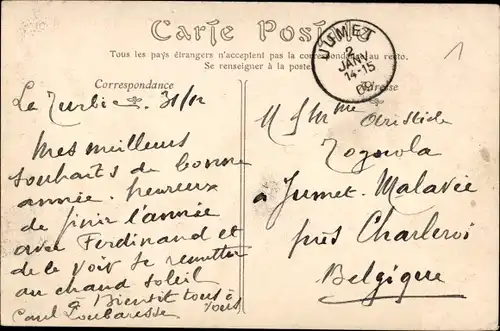 Carte Postale
Tous les pays étrangers n'acceptent pas la correspondance au recto.
Se renseigner à la poste.
JUMET
2
JANV
14-15
09
1
Correspondance
Adresse
La Turbie 31/12
Mes meilleurs
souhaits de bonne
année. heureux
de finir l'année
avec Ferdinand et
de le voir se remettre
au chaud soleil
à Bientôt tous à
vous
Paul
M & Mme Aristide
à Jumet-Malavée
près Charleroi
Belgique